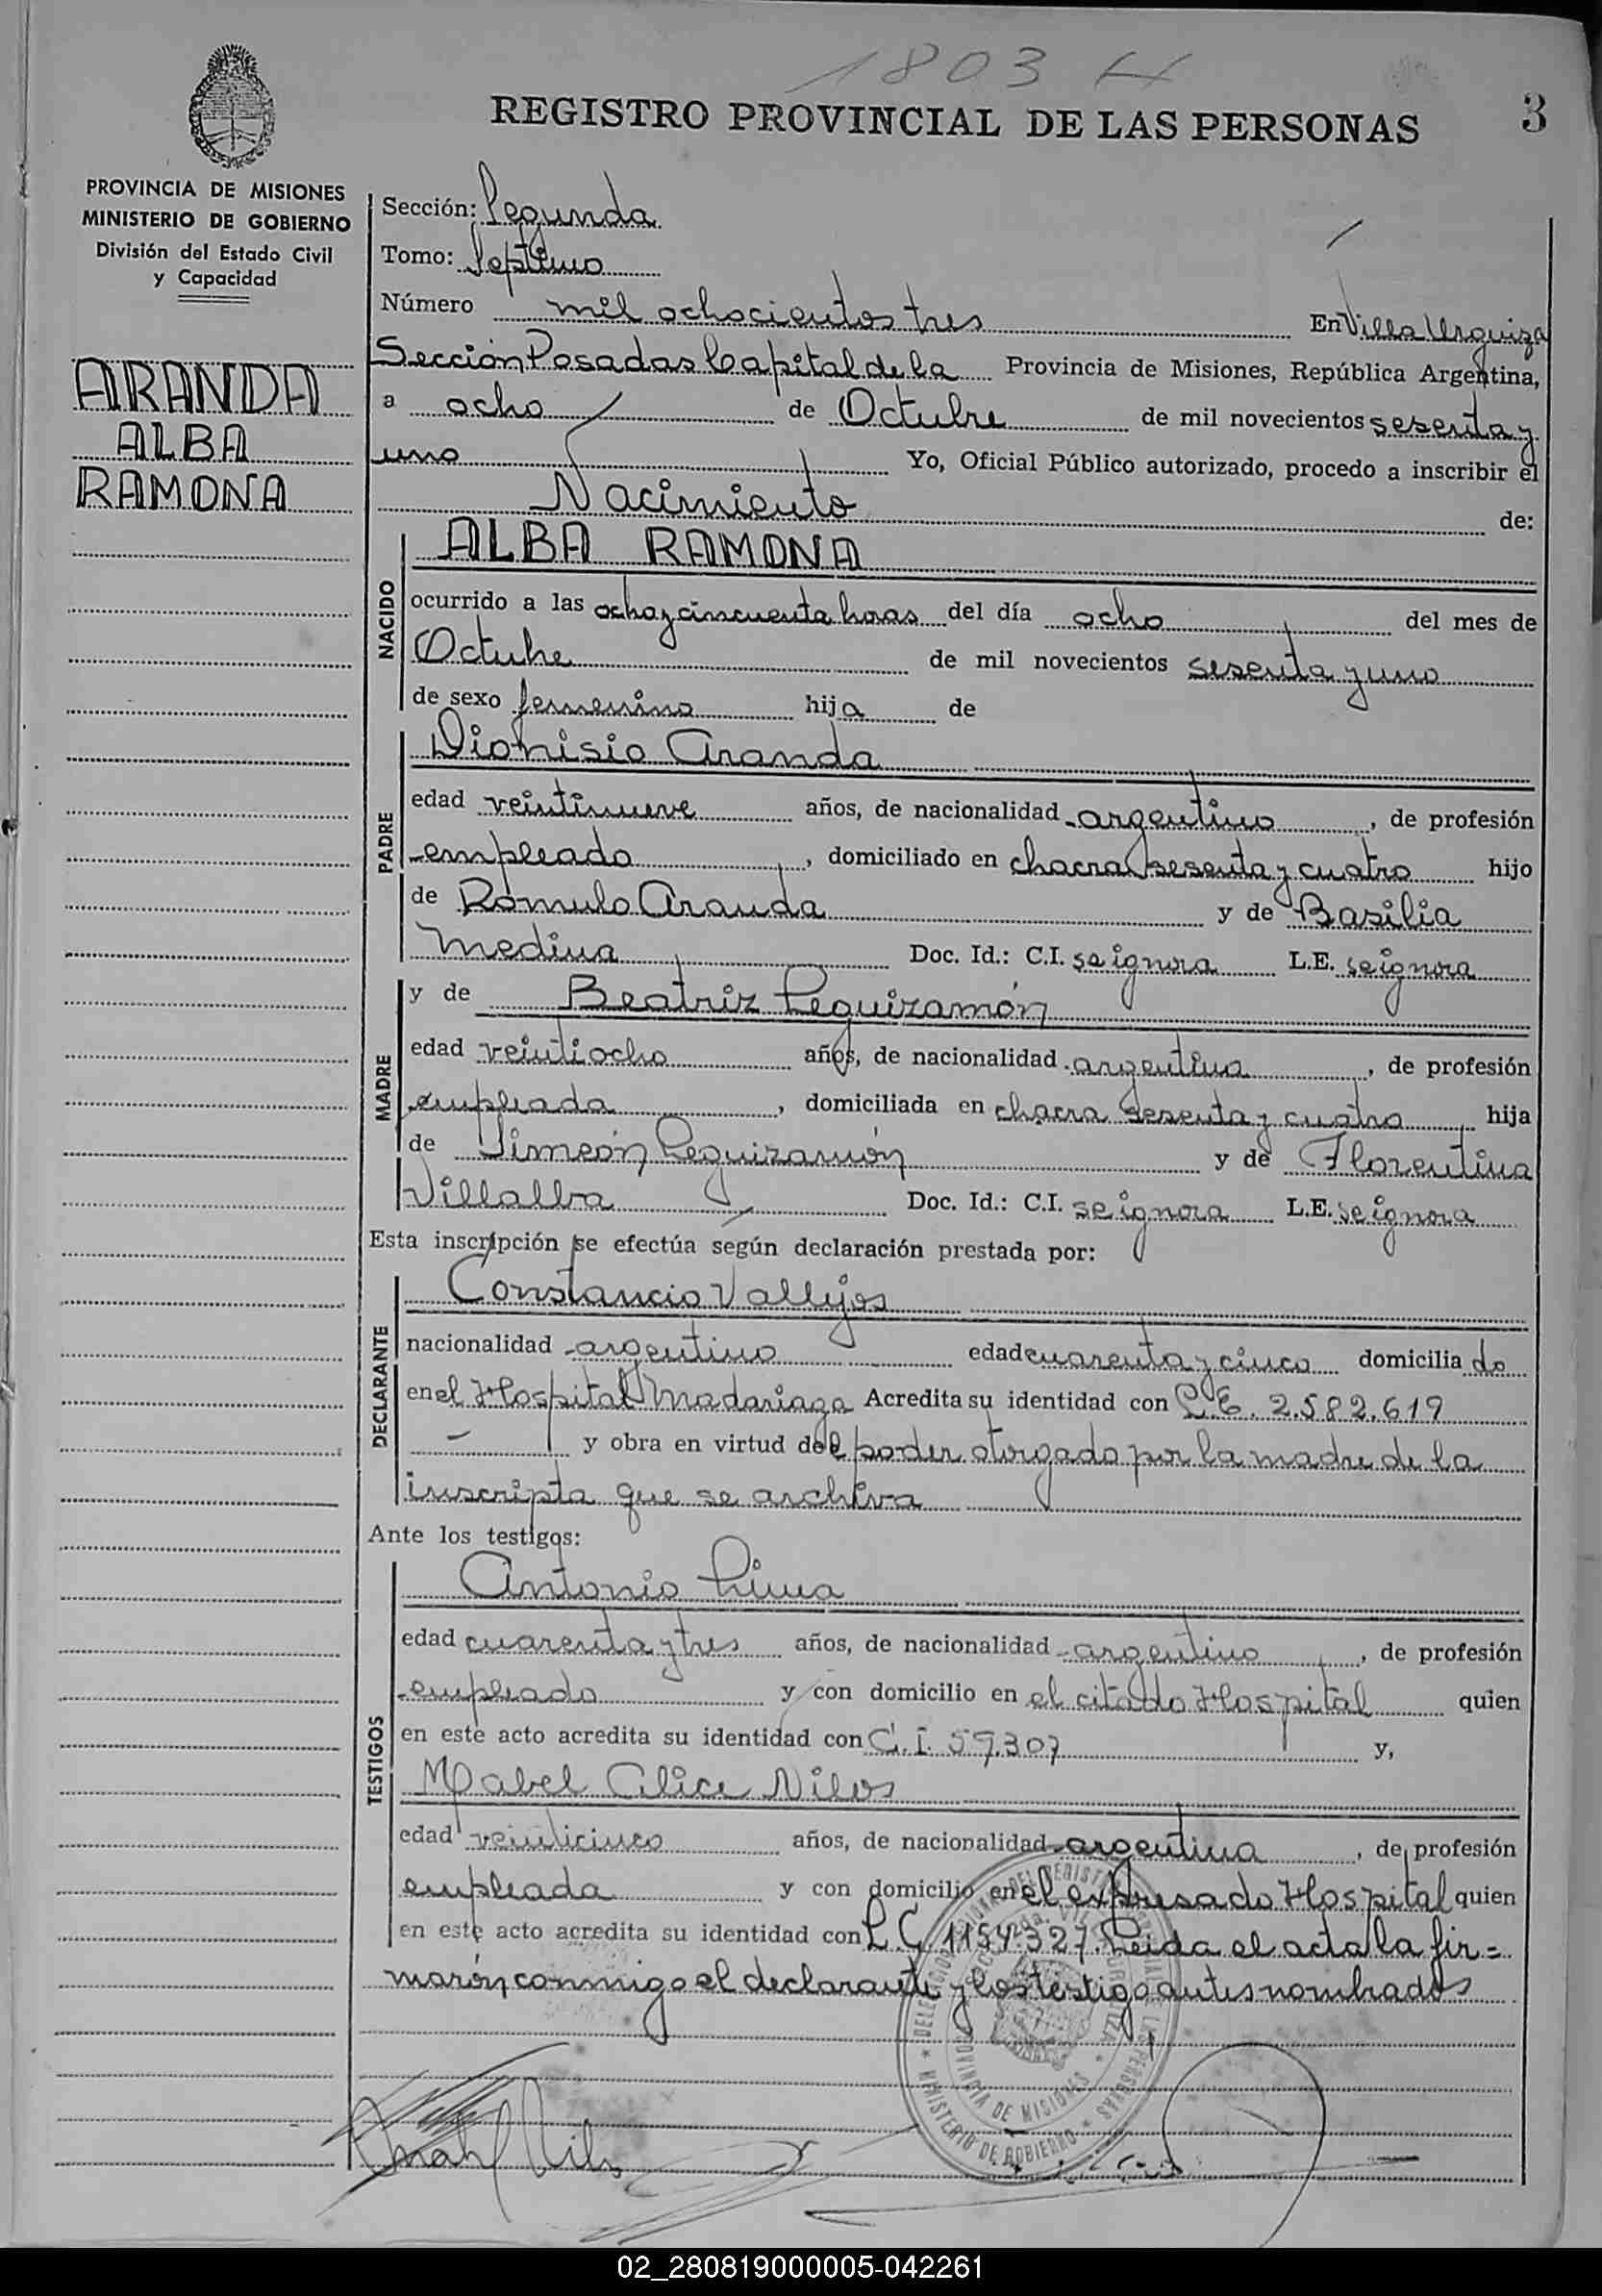 1803 H
REGISTRO PROVINCIAL DE LAS PERSONAS 3
PROVINCIA DE MISIONES
MINISTERIO DE GOBIERNO
División del Estado Civil
y Capacidad
ARANDA
ALBA
RAMONA
Sección: Segunda
Tomo: Septimo
Número mil ochocientos tres En Villa Urquiza
Sección Posadas Capital de la Provincia de Misiones, República Argentina,
a ocho de Octubre de mil novecientos sesenta y
uno Yo, Oficial Público autorizado, procedo a inscribir el
Nacimiento de:
NACIDO
ALBA RAMONA
ocurrido a las ocho y cincuenta horas del día ocho del mes de
Octubre de mil novecientos sesenta y uno
de sexo femenino hija de
PADRE
Dionisio Aranda
edad veintinueve años, de nacionalidad argentino, de profesión
empleado, domiciliado en chacra sesenta y cuatro hijo
de Rómulo Aranda y de Basilia
Medina Doc. Id.: C.I. se ignora L.E. se ignora
MADRE
y de Beatriz Leguizamón
edad veintiocho años, de nacionalidad argentina, de profesión
empleada, domiciliada en chacra sesenta y cuatro hija
de Simeón Leguizamón y de Florentina
Villalba Doc. Id.: C.I. se ignora L.E. se ignora
Esta inscripción se efectúa según declaración prestada por:
DECLARANTE
Constancio Vallejos
nacionalidad argentino edad cuarenta y cinco domiciliado
en el Hospital Madariaga Acredita su identidad con L.E. 2.582.619
- y obra en virtud del poder otorgado por la madre de la
inscripta que se archiva
Ante los testigos:
TESTIGOS
Antonio Lima
edad cuarenta y tres años, de nacionalidad argentino, de profesión
empleado y con domicilio en el citado Hospital quien
en este acto acredita su identidad con C.I. 57.307 y,
Mabel Alice Nilos
edad veinticinco años, de nacionalidad argentina, de profesión
empleada y con domicilio en el expresado Hospital quien
en este acto acredita su identidad con L.C. 1154.327. Leida el acta la fir=
marón conmigo el declarante y los testigo antes nombrados
MINISTERIO DE GOBIERNO
PROVINCIA DE MISIONES
02_280819000005-042261